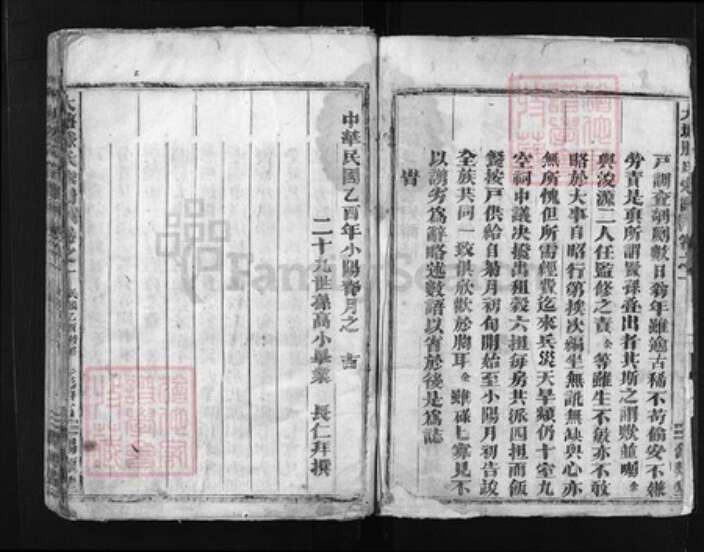 戶調查訓勵數日翁年雖逾古稀不苟偷安不嫌
勞責是項所謂賢孫叠出者其斯之謂歟並囑余
與浚源二人任監修之責余等雖生不敏亦不敢
略於大事自昭行第挨次編生無訛無缺與心亦
無所愧但所需經費迄來兵災天旱頻仍十室九
空祠中議决撥出租穀六担每房共派四担而飯
餐按戶供給自菊月初旬開始至小陽月初告竣
全族共同一致俱欣歡於胸耳余雖祿上寡見不
以謭劣為辭略述數語以省於後是為誌
旹
中華民國乙酉年小陽春月之 吉
二十九世孫高小畢業 長仁拜撰